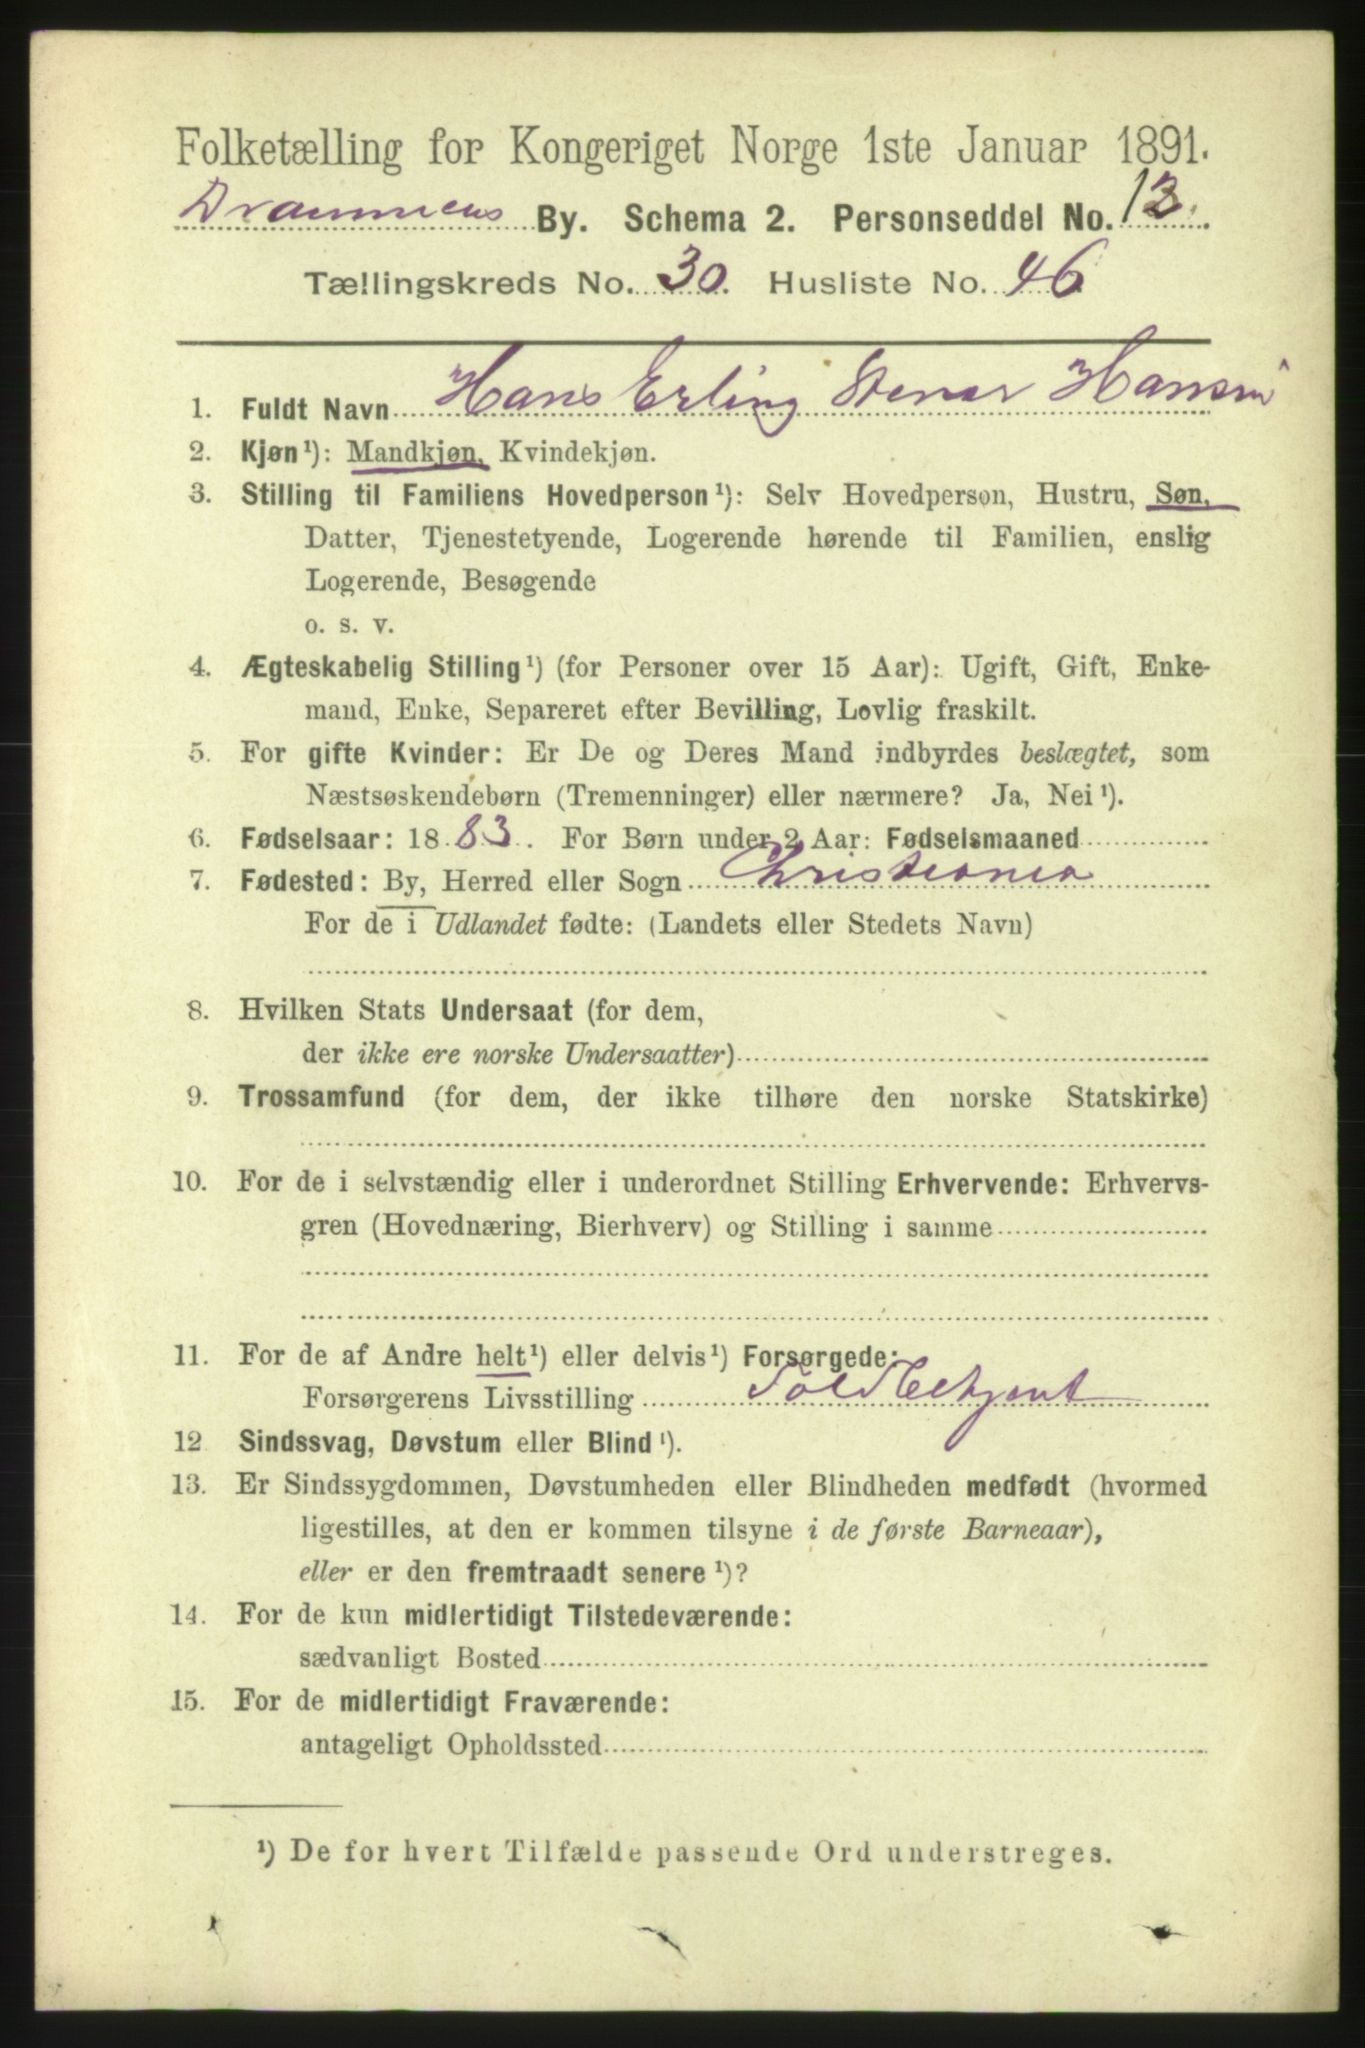 Folketælling for Kongeriget Norge 1ste Januar 1891.
Drammens By. Schema 2. Personseddel No. 12.
Tællingskreds No. 30. Husliste No. 46
1. Fuldt Navn Hans Erling Stenar Hansen
2. Kjøn¹): Mandkjøn, Kvindekjøn.
3. Stilling til Familiens Hovedperson¹): Selv Hovedperson, Hustru, Søn,
Datter, Tjenestetyende, Logerende hørende til Familien, enslig
Logerende, Besøgende
o. s. v.
4. Ægteskabelig Stilling¹) (for Personer over 15 Aar): Ugift, Gift, Enke-
mand, Enke, Separeret efter Bevilling, Lovlig fraskilt.
5. For gifte Kvinder: Er De og Deres Mand indbyrdes beslægtet, som
Næstsøskendebørn (Tremenninger) eller nærmere? Ja, Nei¹).
6. Fødselsaar: 1883. For Børn under 2 Aar: Fødselsmaaned
7. Fødested: By, Herred eller Sogn Christiania
For de i Udlandet fødte: (Landets eller Stedets Navn)
8. Hvilken Stats Undersaat (for dem,
der ikke ere norske Undersaatter)
9. Trossamfund (for dem, der ikke tilhøre den norske Statskirke)
10. For de i selvstændig eller i underordnet Stilling Erhvervende: Erhvervs-
gren (Hovednæring, Bierhverv) og Stilling i samme
11. For de af Andre helt¹) eller delvis¹) Forsørgede:
Forsørgerens Livsstilling Toldbetjent
12 Sindssvag, Døvstum eller Blind¹).
13. Er Sindssygdommen, Døvstumheden eller Blindheden medfødt (hvormed
ligestilles, at den er kommen tilsyne i de første Barneaar),
eller er den fremtraadt senere¹)?
14. For de kun midlertidigt Tilstedeværende:
sædvanligt Bosted
15. For de midlertidigt Fraværende:
antageligt Opholdssted
¹) De for hvert Tilfælde passende Ord understreges.